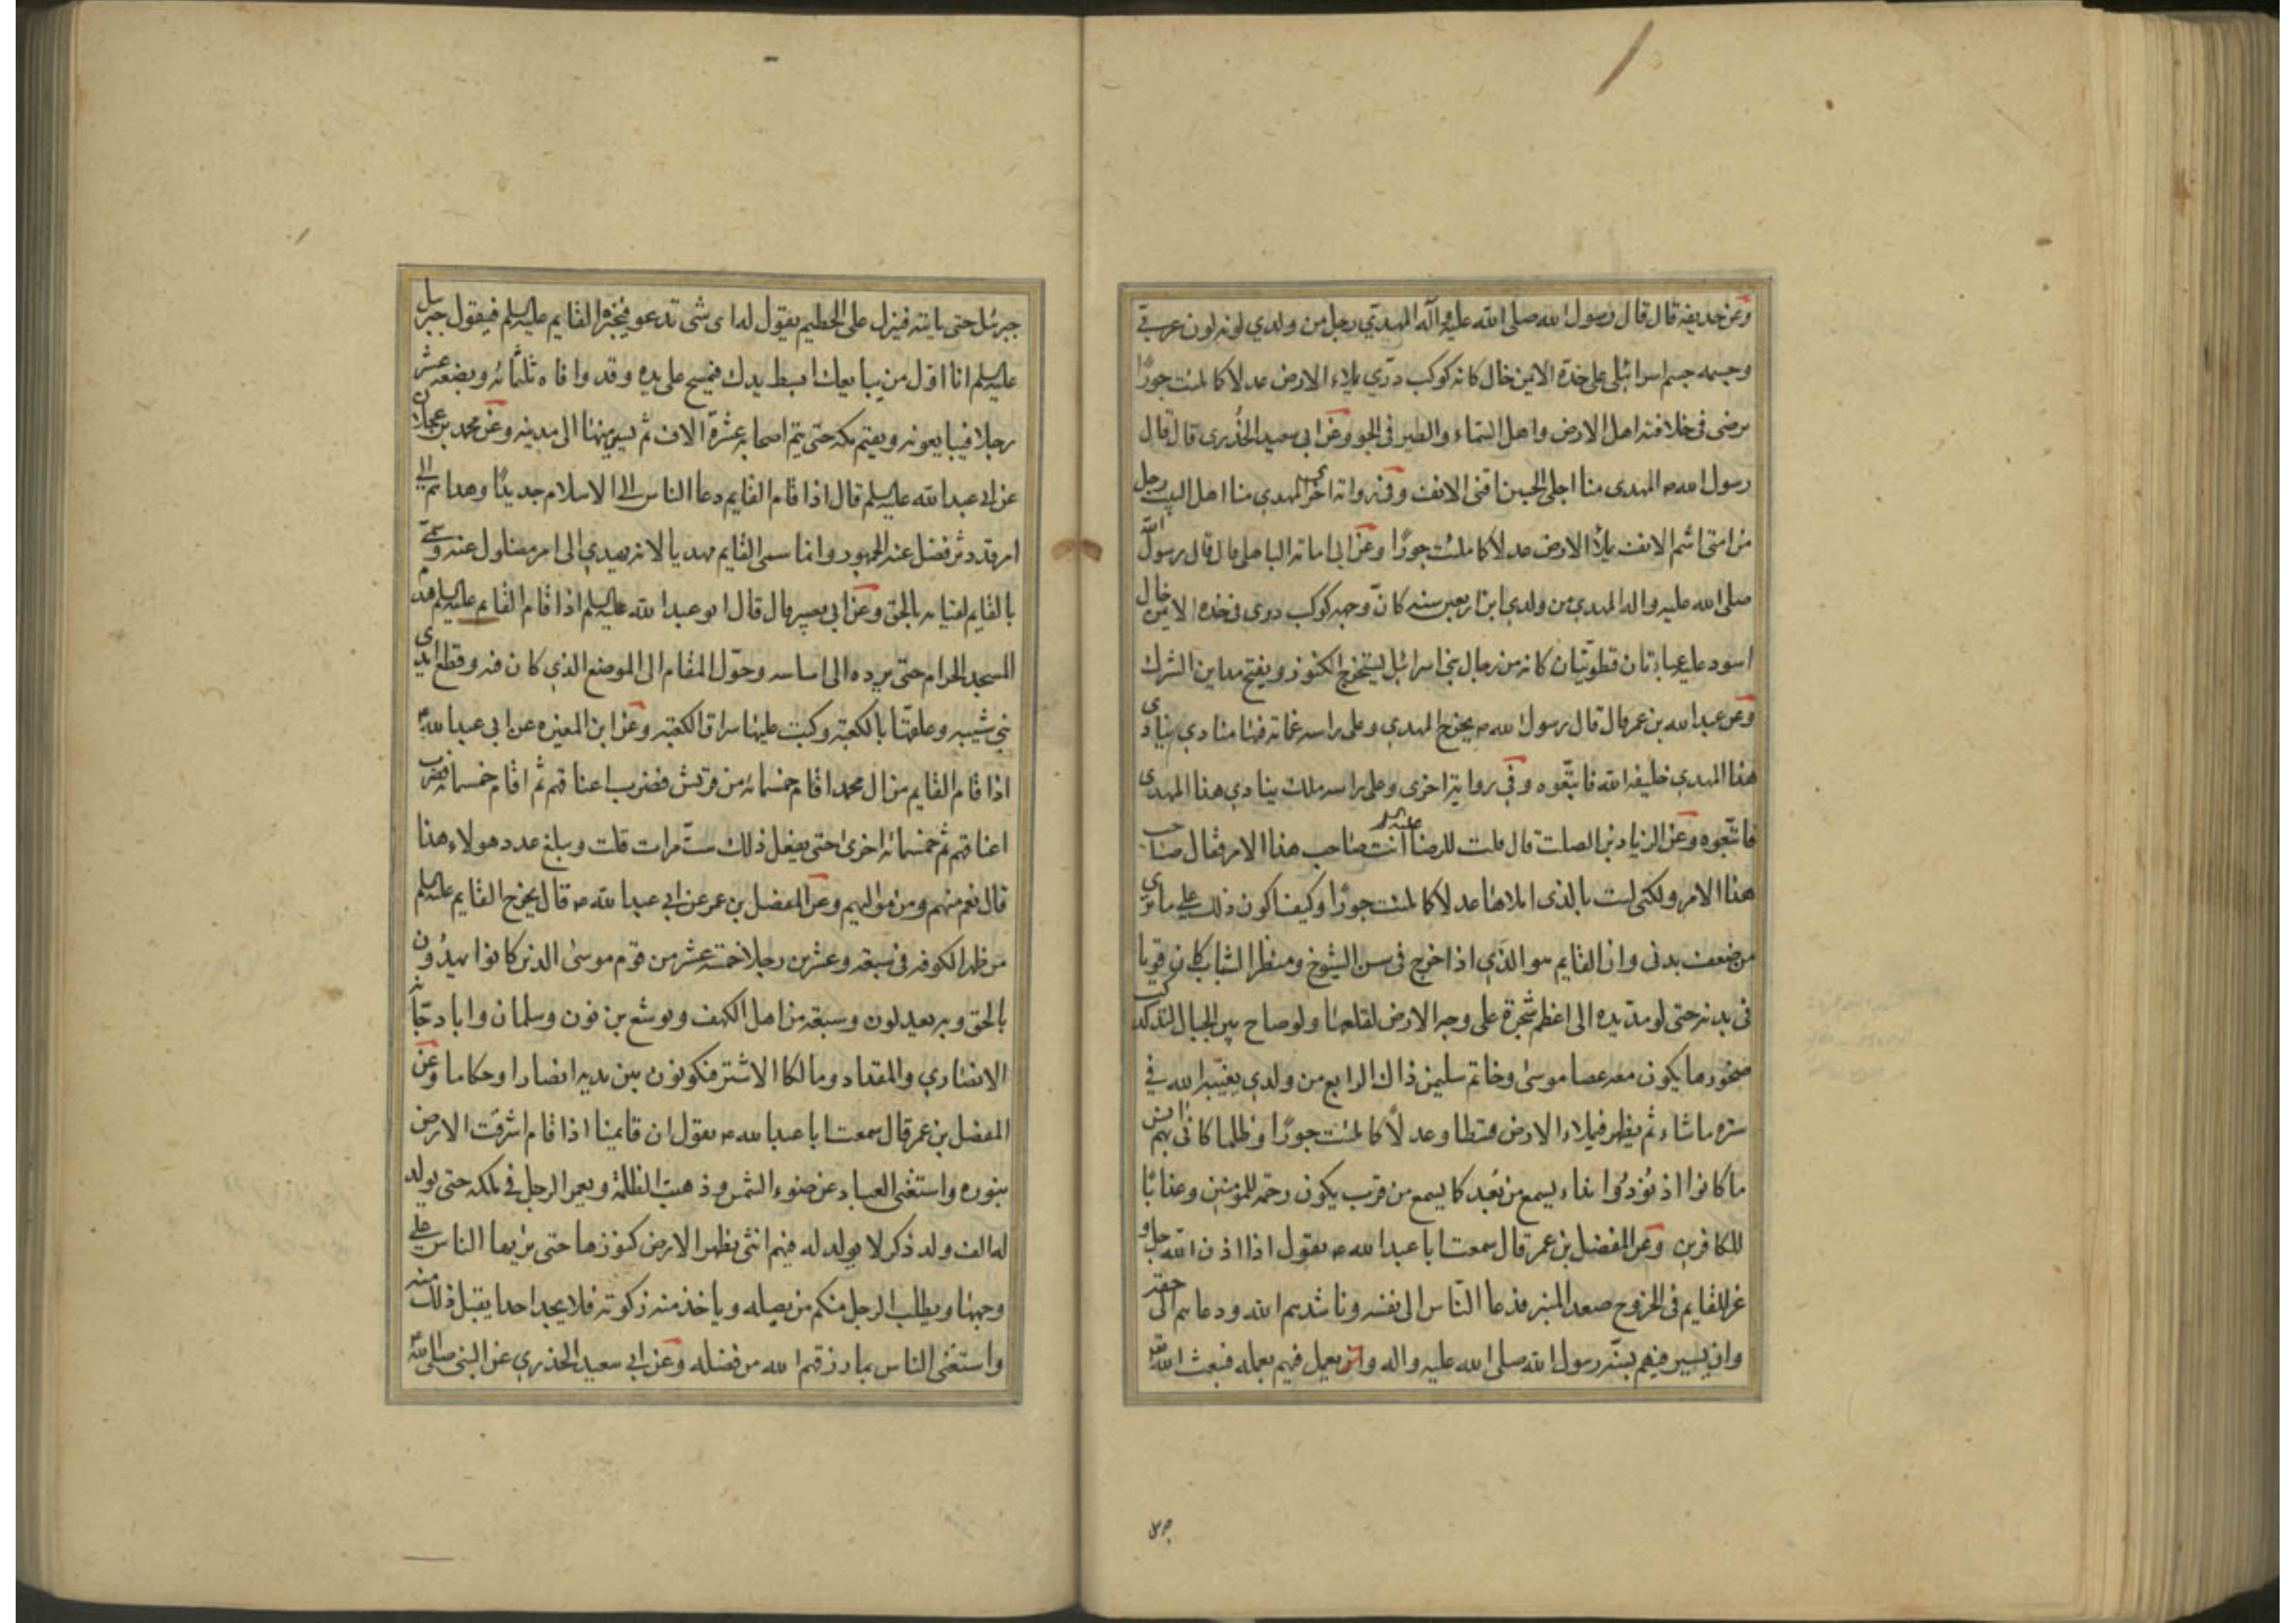 وعن حذيفه قال قال رسول الله صلى الله عليه وآله المهدي رجل من ولدي لونه لون عربي
وجسمه جسم اسرائيلي على خده الايمن خال كانه كوكب دري يملاء الارض عدلا كما ملئت جورًا
يرضى في خلافته اهل الارض واهل السماء والطير في الجو وعن ابي سعيد الخُدرى قال قال
رسول الله ص المهدى منا اجلى الجبين اقنى الانف وفي رواية اخرى المهدي منا اهل البيت رجل
من امتى اشم الانف يملأ الارض عدلاً كما ملئت جورًا وعن ابى امامة الباهلى قال قال رسول الله
صلى الله عليه واله المهدي من ولدي ابن اربعين سنه كانّ وجهه كوكب دري في خده الايمن خال
اسود عليه عباءتان قطوتيّان كانه من رجال بني اسرائيل يستخرج الكنوز ويفتح مداين الشرك
وعن عبد الله بن عمر قال قال رسول الله ص يخرج المهدي وعلى راسه غمامة فيها منادي ينادى
هذا المهدي خليفه الله فاتبّعوه وفي رواية اخرى وعلى راسه ملك ينادي هذا المهدى
فاتبّعوه وعن الزياد بن الصلت قال قلت للرضا عليه السلم أنت صاحب هذا الامر فقال صاحب
هذا الامر ولكنى لست بالذى املاها عدلا كما ملئت جورًا وكيف اكون ذلك على ما ترى
من ضعف بدنى وان القايم هو الذي اذا خرج في سن الشيوخ ومنظر الشاب كان قويا
في بدنه حتى لو مدّ يده الى اعظم شجرة على وجه الارض لقلعها ولو صاح بين الجبال لتدكدكت
صخورها يكون معه عصا موسى وخاتم سليمن ذاك الرابع من ولدي يغيّبه الله في
ستره ما شاء ثم يظهر فيملاء الارض قسطا وعدلاً كما ملئت جورًا وظلما كانى بهم آيس
ما كانوا اذ نُودُوا نداء يسمع من بُعد كما يسمع من قرب يكون رحمة للمؤمنين وعذابًا
للكافرين وعن المفضل بن عمر قال سمعت ابا عبد الله ص يقول اذا اذن الله جل و
عز للقايم في الخروج صعد المنبر فدعا النّاس الى نفسه وناشدهم الله ودعاهم الى حقه
وان يسير فيهم بسنّة رسول الله صلى الله عليه واله وان يعمل فيهم بعمله فيبعث الله
جبرئيل حتى ياتيه فينزل على الحطيم يقول له اى شى تدعو فيخبره القايم عليه السلم فيقول جبرئيل
عليه السلم انا اول من يبايعك ابسط يدك فيمسح على يده وقد وافاه ثلثمائه وبضعه عشر
رجلا فيبايعونه ويقيم بمكه حتى يتم اصحابه عشرة الاف ثم يسير منها الى مدينه وعن محمد بن عجلان
عن ابي عبد الله عليه السلم قال اذا قام القايم دعا الناس الى الاسلام جديدًا وهداهم الى
امر قد دثر فضل عنه الجمهور وانما سمى القايم مهديا لانه يهدي الى امر مضلول عنه وسمى
بالقايم لقيامه بالحق وعن ابي بصير قال قال ابو عبد الله عليه السلم اذا قام القايم عليه السلم هدم
المسجد الحرام حتى يرده الى اساسه وحوّل المقام الى الموضع الذي كان فيه وقطع ايدى
بني شيبه وعلقها بالكعبة وكتب عليها سراق الكعبة وعن ابن المغيره عن ابي عبد الله
اذا قام القايم من ال محمد اقام خمسمائه من قريش فضرب اعناقهم ثم اقام خمسمائه فضرب
اعناقهم ثم خمسمائه اخرى حتى يفعل ذلك ستّ مرات قلت ويبلغ عدد هولاء هذا
قال نعم منهم ومن مواليهم وعن المفضل بن عمر عن ابي عبد الله ص قال يخرج القايم عليه السلم
من ظهر الكوفه في سبعة وعشرين رجلا خمسة عشر من قوم موسى الذين كانوا يهدُون
بالحق وبه يعدلون وسبعة من اهل الكهف ويوشع بن نون وسلمان وابا دجانه
الانصاري والمقداد ومالكا الاشتر فيكونون بين يديه انصارا وحكاما وعن
المفضل بن عمر قال سمعت ابا عبد الله ص يقول ان قايمنا اذا قام اشرقت الارض
بنوره واستغنى العباد عن ضوء الشمس وذهبت الظلمة ويعمر الرجل في ملكه حتى يولد
له الف ولد ذكر لا يولد له فيهم انثى يظهر الارض كنوزها حتى يراها الناس على
وجهها ويطلب الرجل منكم من يصله وياخذ منه زكوته فلا يجد احدا يقبل ذلك منه
واستغنى الناس بما رزقهم الله من فضله وعن ابي سعيد الخدري عن النبى صلى الله